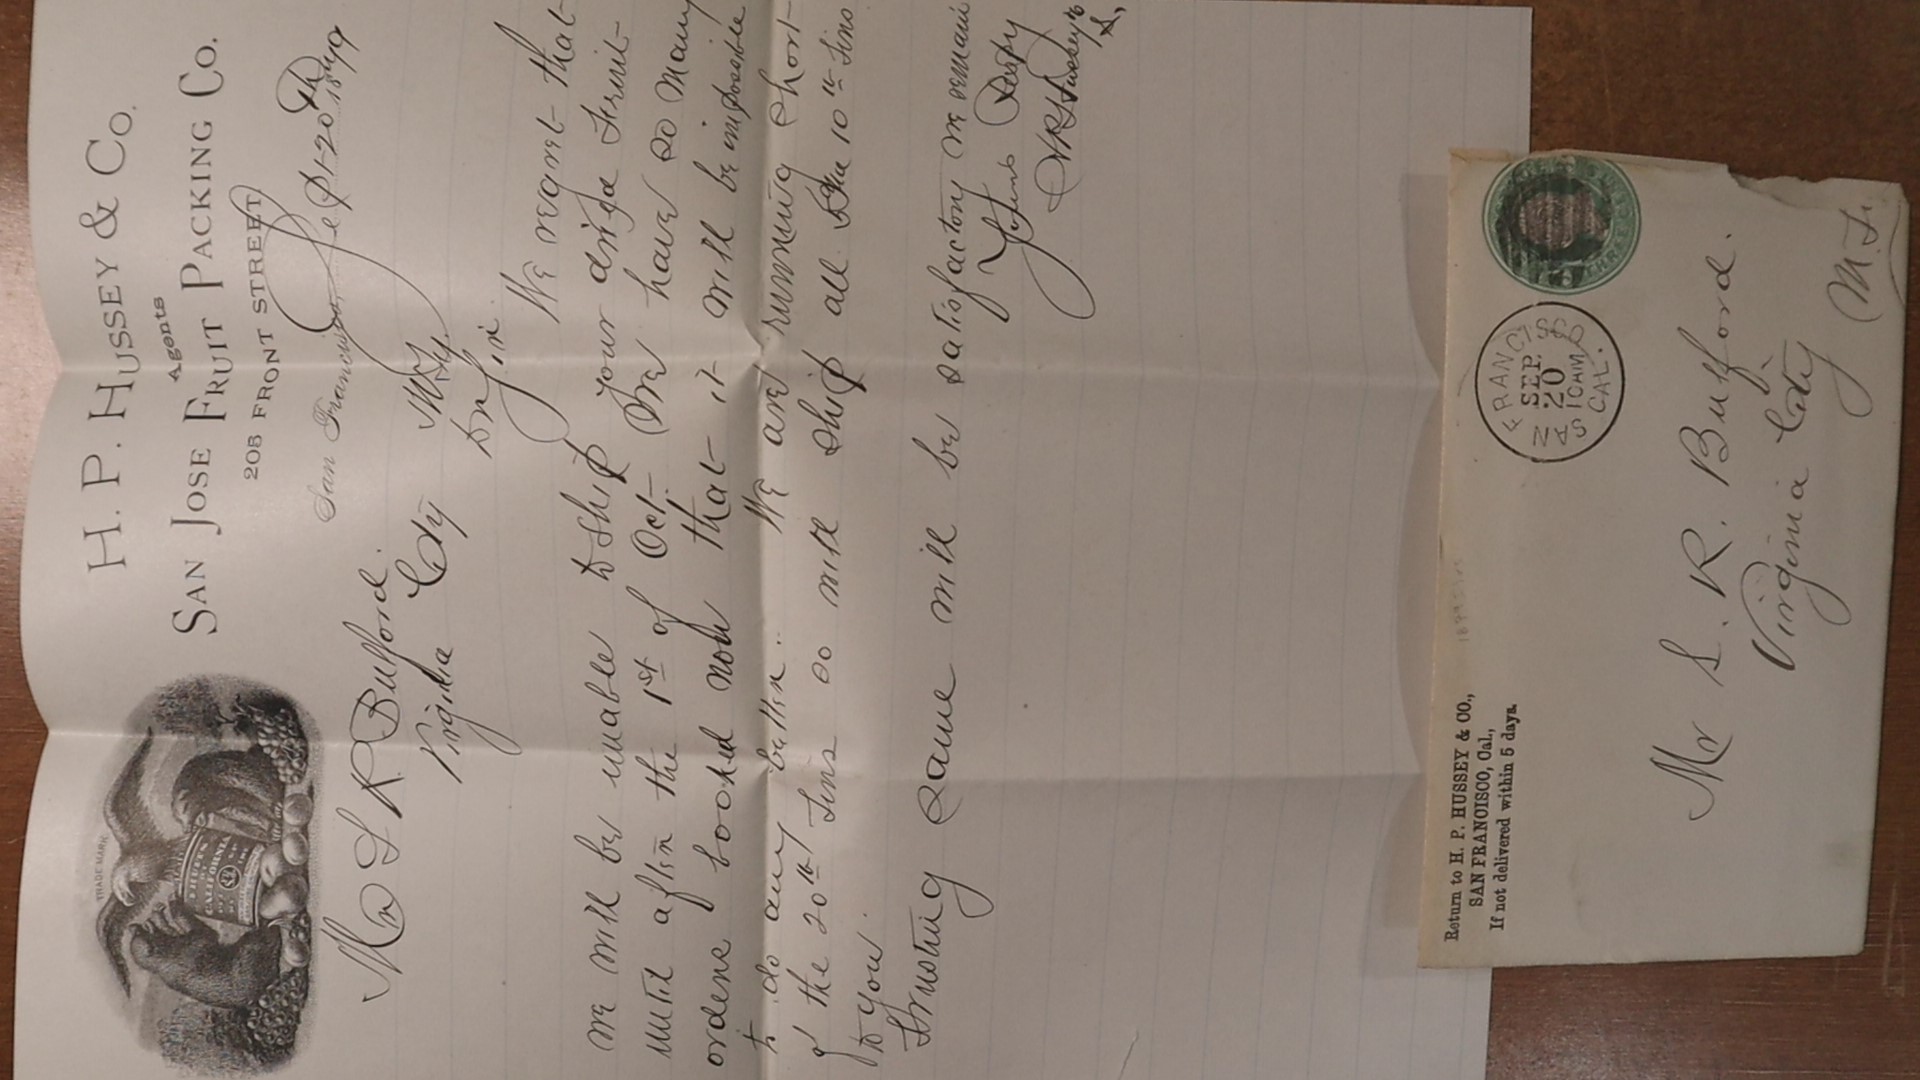 H. P. HUSSEY & CO.
Agents
SAN JOSE FRUIT PACKING CO.
208 FRONT STREET
TRADE MARK
FRUITS
CALIFORNIA
San Francisco, Sept 20th 1879
Mr S R Buford.
Virginia City M.T.
Dr Sir.
We regret that
we will be unable to ship your dried fruit
until after the 1st of Oct. We have so many
orders booked now that it will be impossible
to do any better. We are running short
of the 20th tins so will ship all the 10th tins
to you.
Trusting same will be satisfactory we remain
Yours Respy
H P Hussey & Co
S.
Return to H. P. HUSSEY & CO.,
SAN FRANCISCO, Cal.,
If not delivered within 5 days.
SAN FRANCISCO
SEP
20
10AM
CAL.
THREE
Mr S. R. Buford.
Virginia City
M.T.